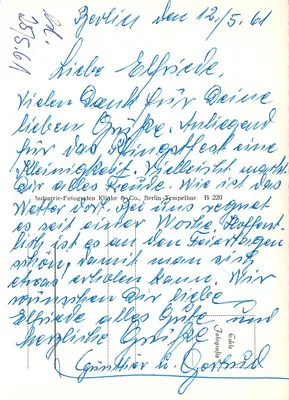 Berlin den 12/5.61
25/5.61
Liebe Elfriede.
Vielen Dank für Deine
lieben Grüße. Anliegend
für das Pfingstfest eine
Kleinigkeit. Vielleicht macht
Dir alles Freude. Wie ist das
Industrie-Fotografen Klinke & Co., Berlin-Tempelhof B 220
Wetter dort. Bei uns regnet
es seit einer Woche. Hoffent-
lich ist es an den Feiertagen
schön, damit man sich
etwas erholen kann. Wir
wünschen Dir liebe
Elfriede alles Gute und
herzliche Grüße
Echte
Fotografie
Günther u. Gertrud